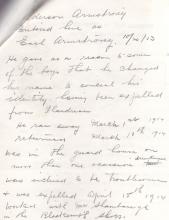 Anderson Armstrong
entered here as
Earl Armstrong, 10/20/13
He gave as a reason to some
of the boys that he changed
his name to conceal his
identity, having been expelled
from
He ran away March 1st 1914
returned March 18th 1914
was in the guard house on
more than one occasion
was inclined to be troublesome
& was expelled April 15th 1914
worked with Mr
in the Blacksmith shop.